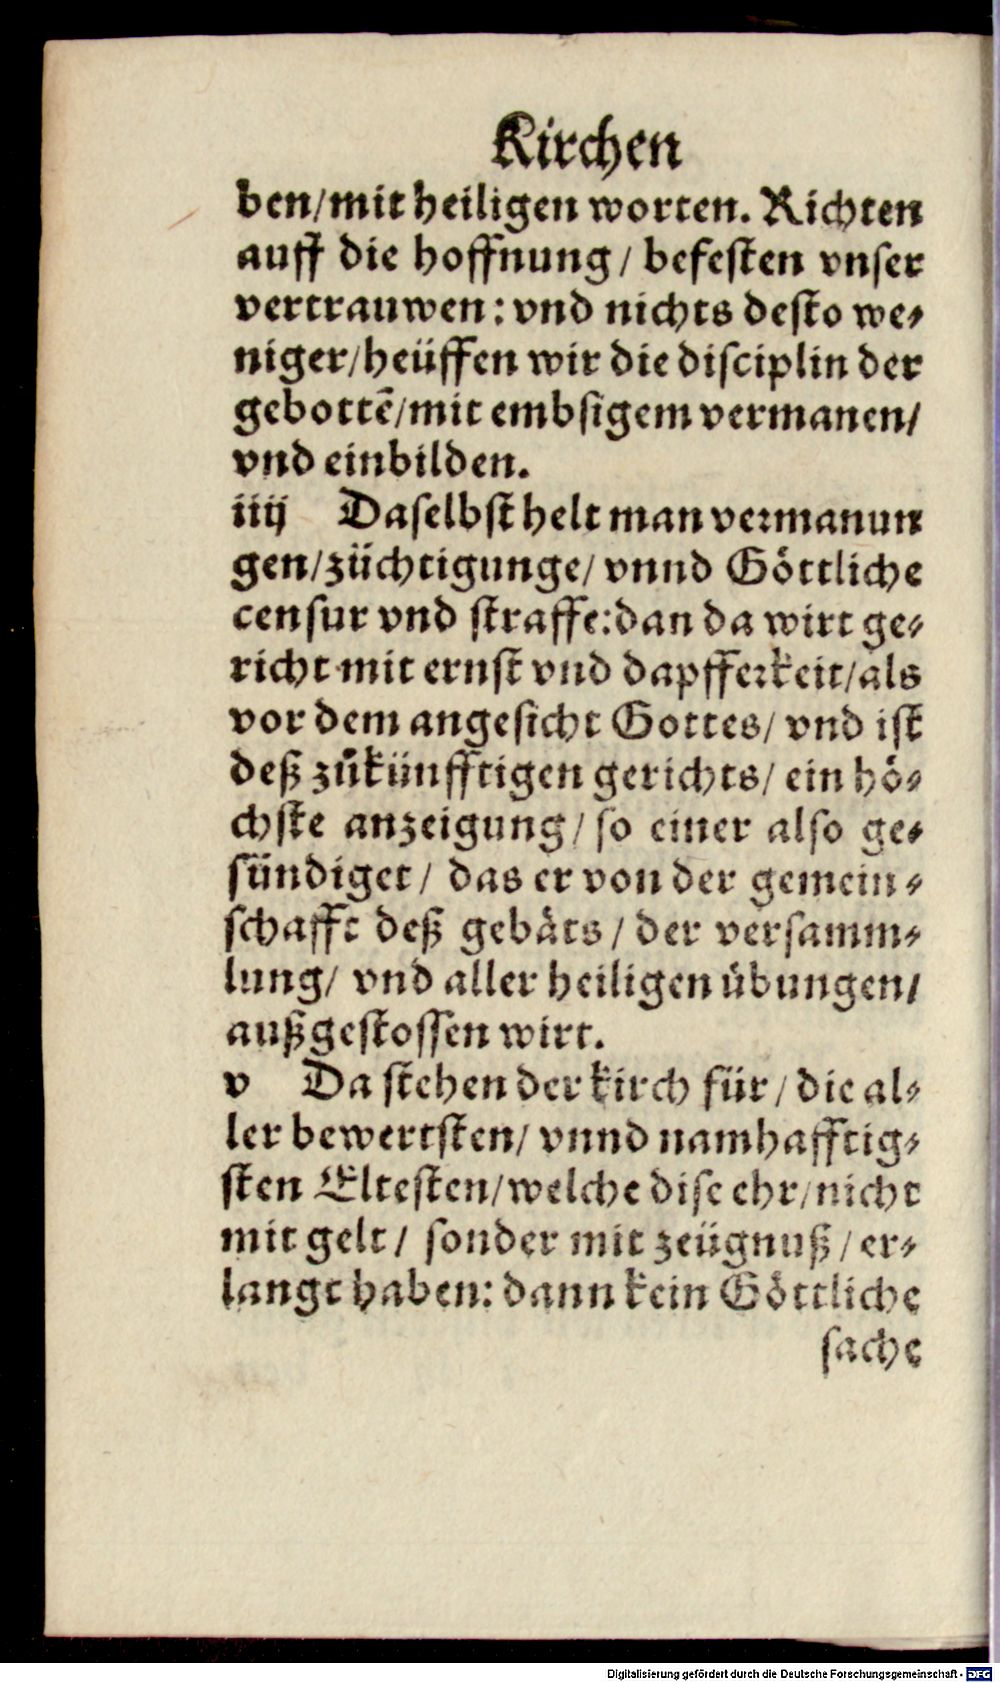 Kirchen
ben/mit heiligen worten. Richten
auff die hoffnung / befesten vnser
vertrauwen: vnd nichts desto we⸗
niger/heüffen wir die disciplin der
gebottē/mit embsigem vermanen/
vnd einbilden.
iiij Daselbst helt man vermanun
gen/züchtigunge/ vnnd Göttliche
censur vnd straffe:dan da wirt ge⸗
richt mit ernst vnd dapfferkeit/als
vor dem angesicht Gottes/ vnd ist
deß zůkünfftigen gerichts/ ein hö⸗
chste anzeigung/ so einer also ge⸗
sündiget / das er von der gemein⸗
schafft deß gebäts / der versamm⸗
lung/ vnd aller heiligen übungen/
außgestossen wirt.
v Da stehen der kirch für / die al⸗
ler bewertsten/ vnnd namhafftig⸗
sten Eltesten/welche dise ehr/nicht
mit gelt / sonder mit zeügnuß / er⸗
langt haben: dann kein Göttliche
sache
Digitalisierung gefördert durch die Deutsche Forschungsgemeinschaft - DFG